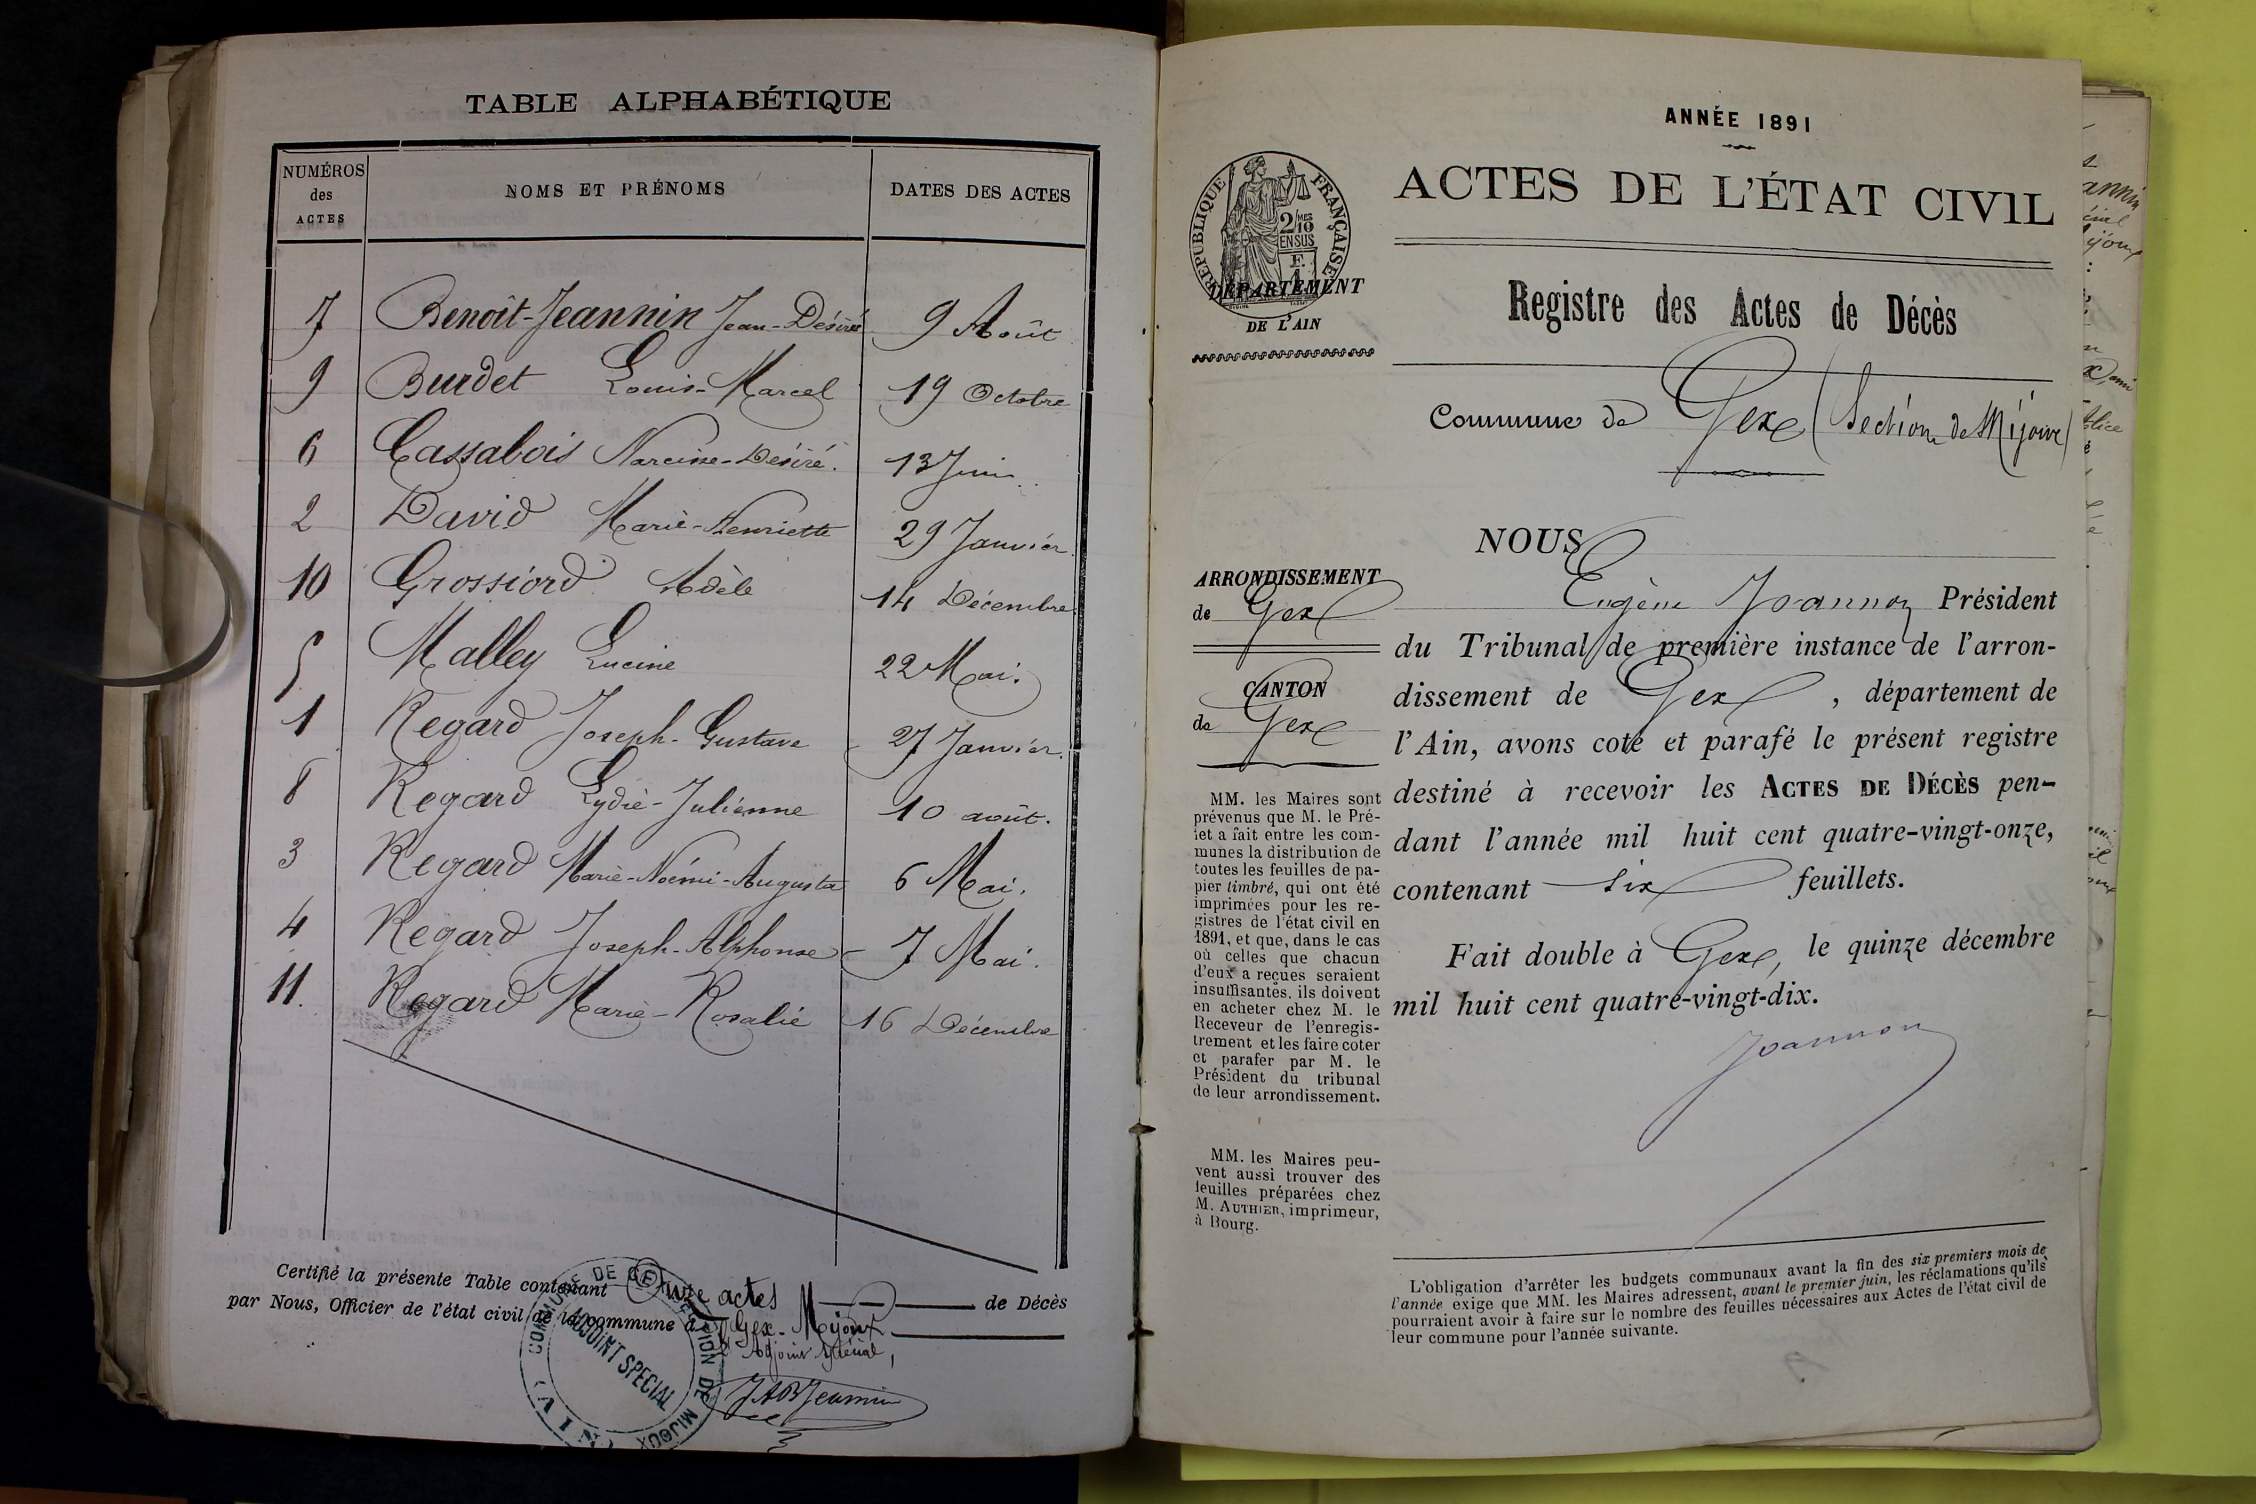 TABLE ALPHABÉTIQUE
NUMÉROS des ACTES NOMS ET PRÉNOMS DATES DES ACTES
7 Benoît-Jeannin Jean-Désiré 9 Août
9 Burdet Louis-Marcel 19 Octobre
6 Cassabois Narcisse-Désiré. 13 Juin
2 David Marie-Henriette 29 Janvier
10 Grossiord Adèle 14 Décembre
5 Malley Lucine 22 Mai.
1 Regard Joseph-Gustave 27 Janvier.
8 Regard Lydie-Julienne 10 août.
3 Regard Marie-Noémi-Augusta 6 Mai.
4 Regard Joseph-Alphonse 7 Mai.
11. Regard Marie-Rosalie 16 Décembre
Certifié la présente Table contenant Onze actes de Décès
par Nous, Officier de l'état civil de la commune de Gex-Mijoux
L'Adjoint Spécial,
JABJeannin
COMMUNE DE GEX SECTION DE MIJOUX
ADJOINT SPECIAL
(AIN)
ANNÉE 1891
ACTES DE L'ÉTAT CIVIL
RÉPUBLIQUE FRANÇAISE
2/10 MES
EN SUS
F.
1
DÉPARTEMENT
DE L'AIN
Registre des Actes de Décès
Commune de Gex (Section de Mijoux)
NOUS
Eugène Joannon Président
du Tribunal de première instance de l'arron-
dissement de Gex, département de
l'Ain, avons coté et parafé le présent registre
destiné à recevoir les ACTES DE DÉCÈS pen-
dant l'année mil huit cent quatre-vingt-onze,
contenant six feuillets.
Fait double à Gex, le quinze décembre
mil huit cent quatre-vingt-dix.
Joannon
ARRONDISSEMENT
de Gex
CANTON
de Gex
MM. les Maires sont
prévenus que M. le Pré-
fet a fait entre les com-
munes la distribution de
toutes les feuilles de pa-
pier timbré, qui ont été
imprimées pour les re-
gistres de l'état civil en
1891, et que, dans le cas
où celles que chacun
d'eux a reçues seraient
insuffisantes, ils doivent
en acheter chez M. le
Receveur de l'enregis-
trement et les faire coter
et parafer par M. le
Président du tribunal
de leur arrondissement.
MM. les Maires peu-
vent aussi trouver des
feuilles préparées chez
M. AUTHIER, imprimeur,
à Bourg.
L'obligation d'arrêter les budgets communaux avant la fin des six premiers mois de
l'année exige que MM. les Maires adressent, avant le premier juin, les réclamations qu'ils
pourraient avoir à faire sur le nombre des feuilles nécessaires aux Actes de l'état civil de
leur commune pour l'année suivante.